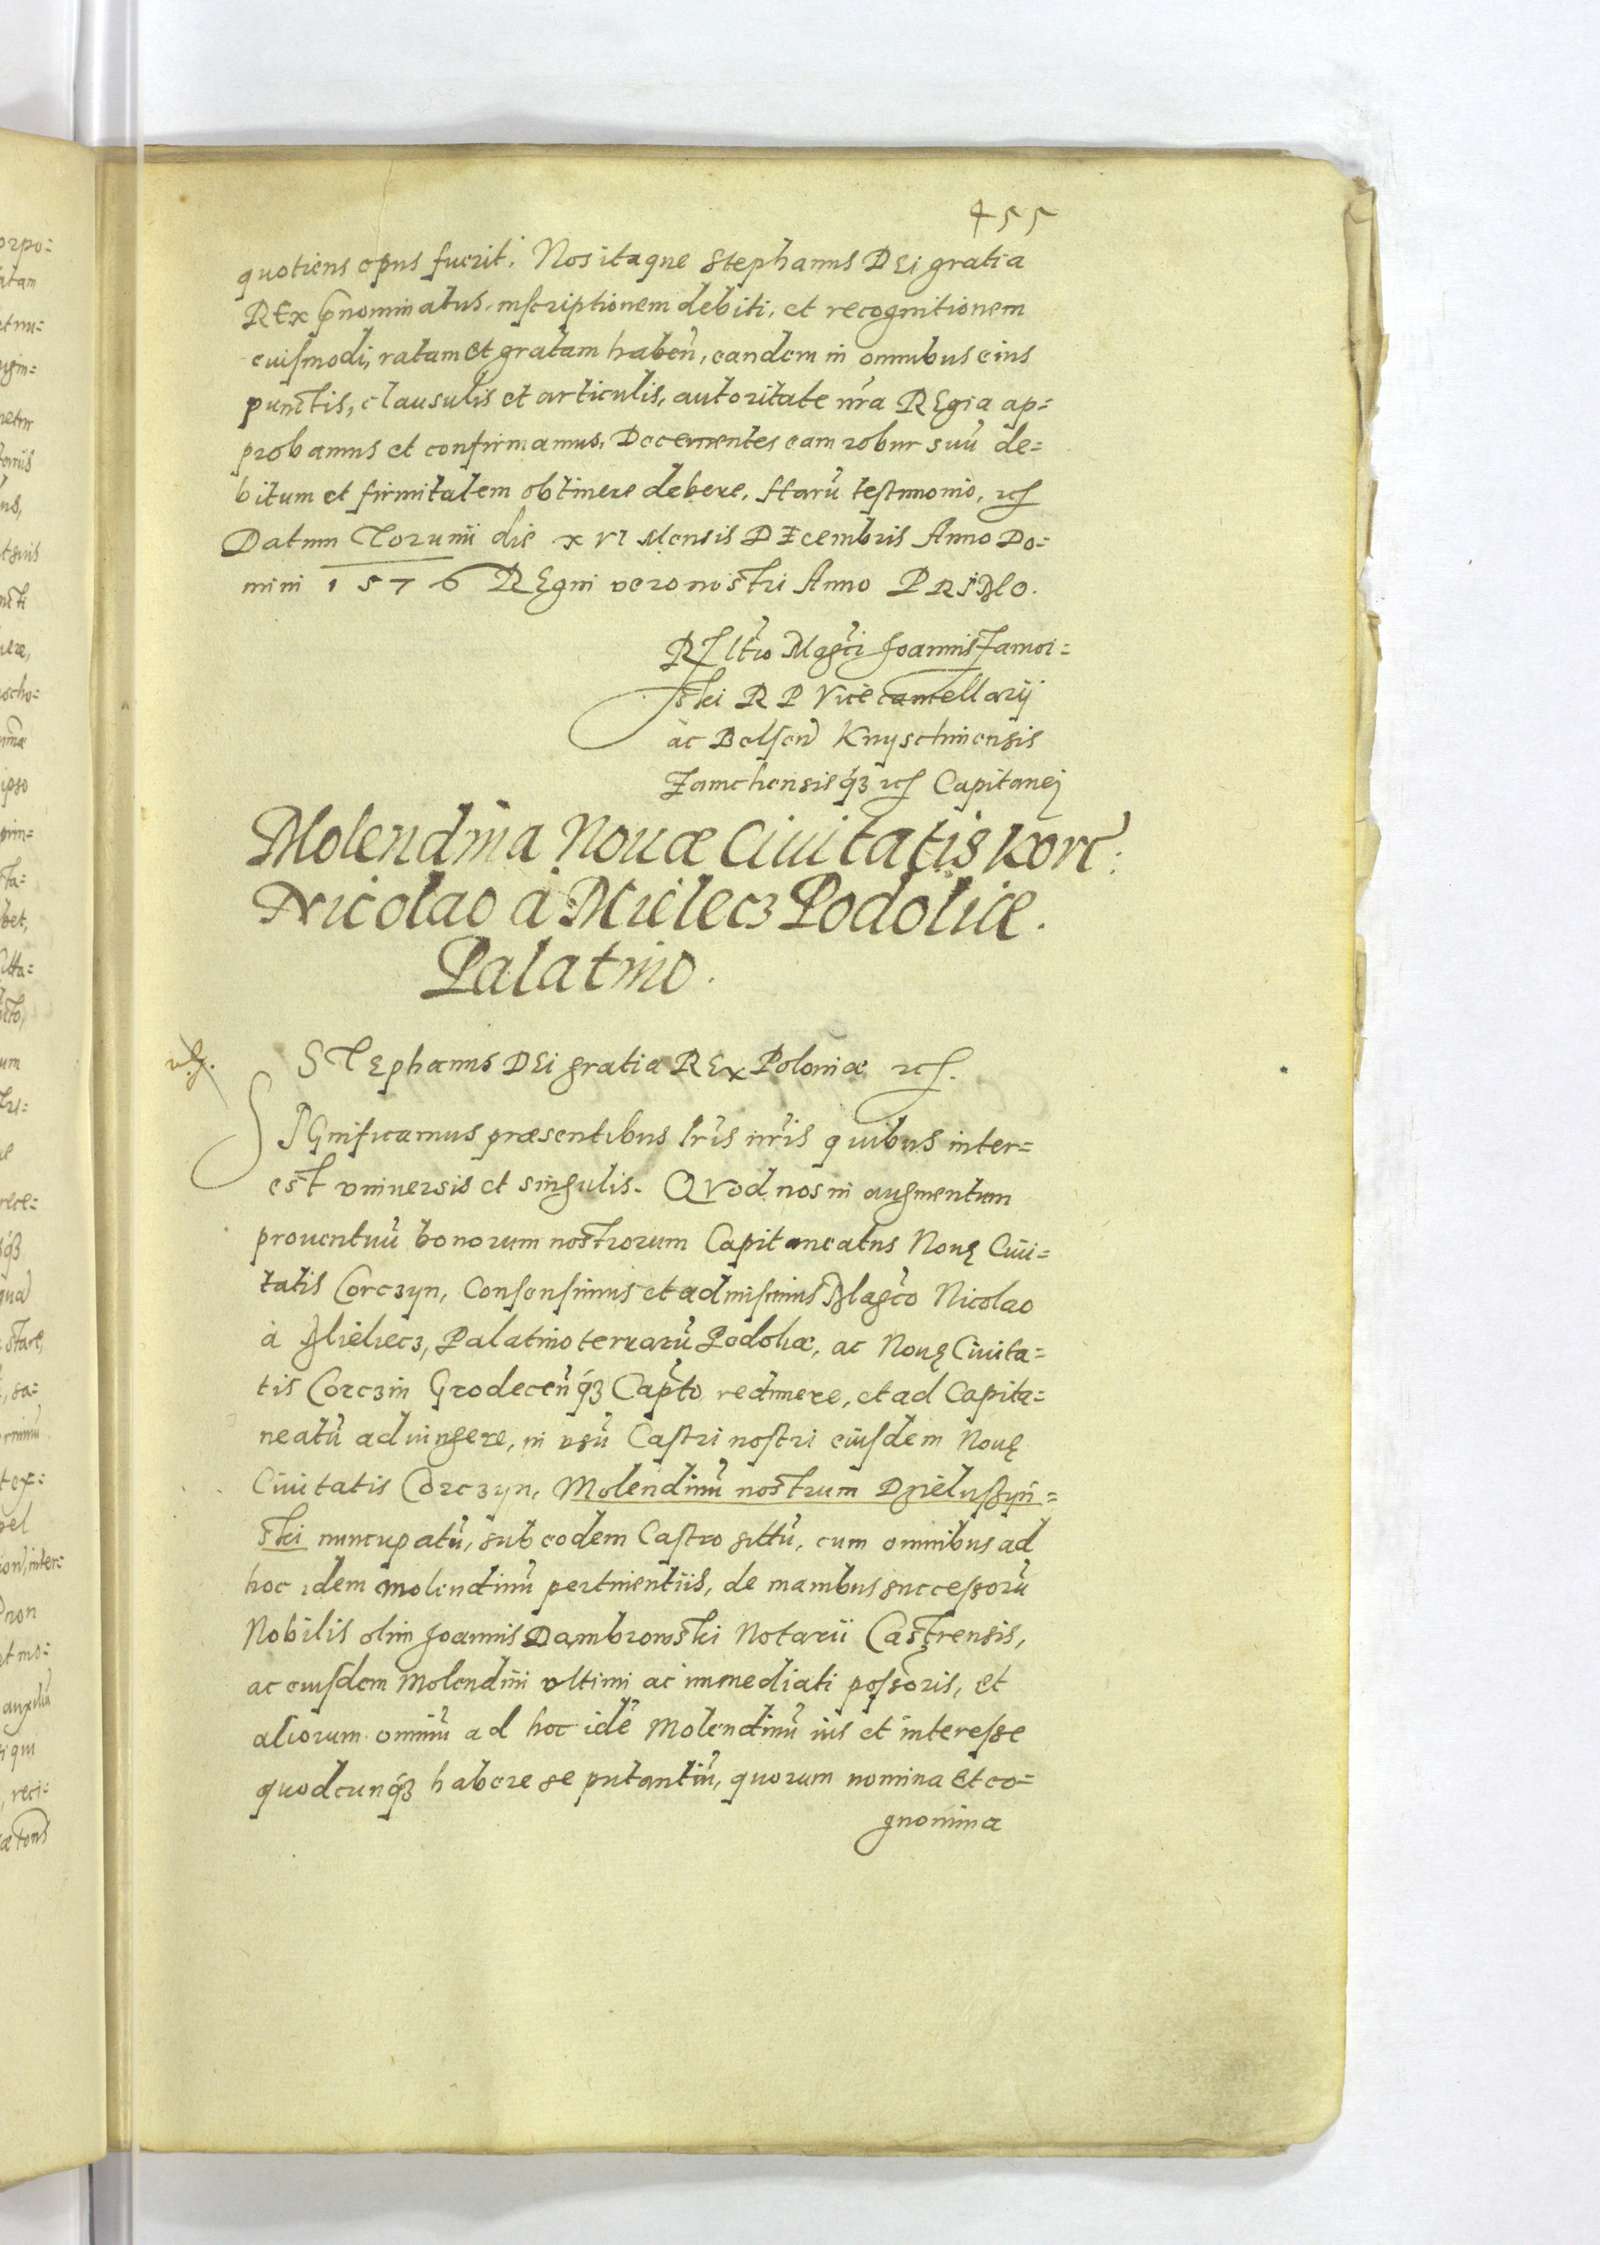 455
quotiens opus fuerit. Nos itaque Stephanus DEi gratia
REx pnominatus, inscriptionem debiti, et recognitionem
euismodi, ratam et gratam haben̄, eandem in omnibus eius
punctis, clausulis et articulis, autoritate nr̄a REgia ap=
probamus et confirmamus, Decernentes eam robur suū de=
bitum et firmitatem obtinere debere. Harū testimonio,
Datum Torunii die xvi Mensis DEcembris Anno Do=
mini 1576 REgni vero nostri Anno PRiMO.
REltio Magci Joannis Zamoi=
ski R P Vicecancellarij
ac Belsen Knyschinensis
Zamchensisq3 Capitanej
Molendina Nouæ Ciuitatis Korc:
Nicolao à Mielecz Podoliæ.
Palatino.
STEphanus DEi gratia REx Poloniæ
SIGnificamus præsentibus lr̄is nr̄is quibus inter=
est vniuersis et singulis. QVod nos in augmentum
prouentuū bonorum nostrorum Capitaneatus Nouę Ciui=
tatis Corczyn, Consensimus et admisimus Magco Nicolao
à Mieliecz, Palatino terrarū Podoliæ, ac Nouę Ciuita=
tis Corczin Grodecen̄q3 Capto redimere, et ad Capita=
neatū adiungere, in vsū Castri nostri eiusdem Nouę
Ciuitatis Corczyn, Molendinū nostrum Dzieluszyn=
ski nuncupatū, sub eodem Castro sittū, cum omnibus ad
hoc idem molendinū pertinentiis, de manibus successorū
Nobilis olim Joannis Dambrowski Notarii Castrensis,
ac eiusdem Molendini vltimi ac immediati possoris, et
aliorum omniū ad hoc idē Molendinū ius et interesse
quodcunq3 habere se putantiū, quorum nomina et co=
gnomina